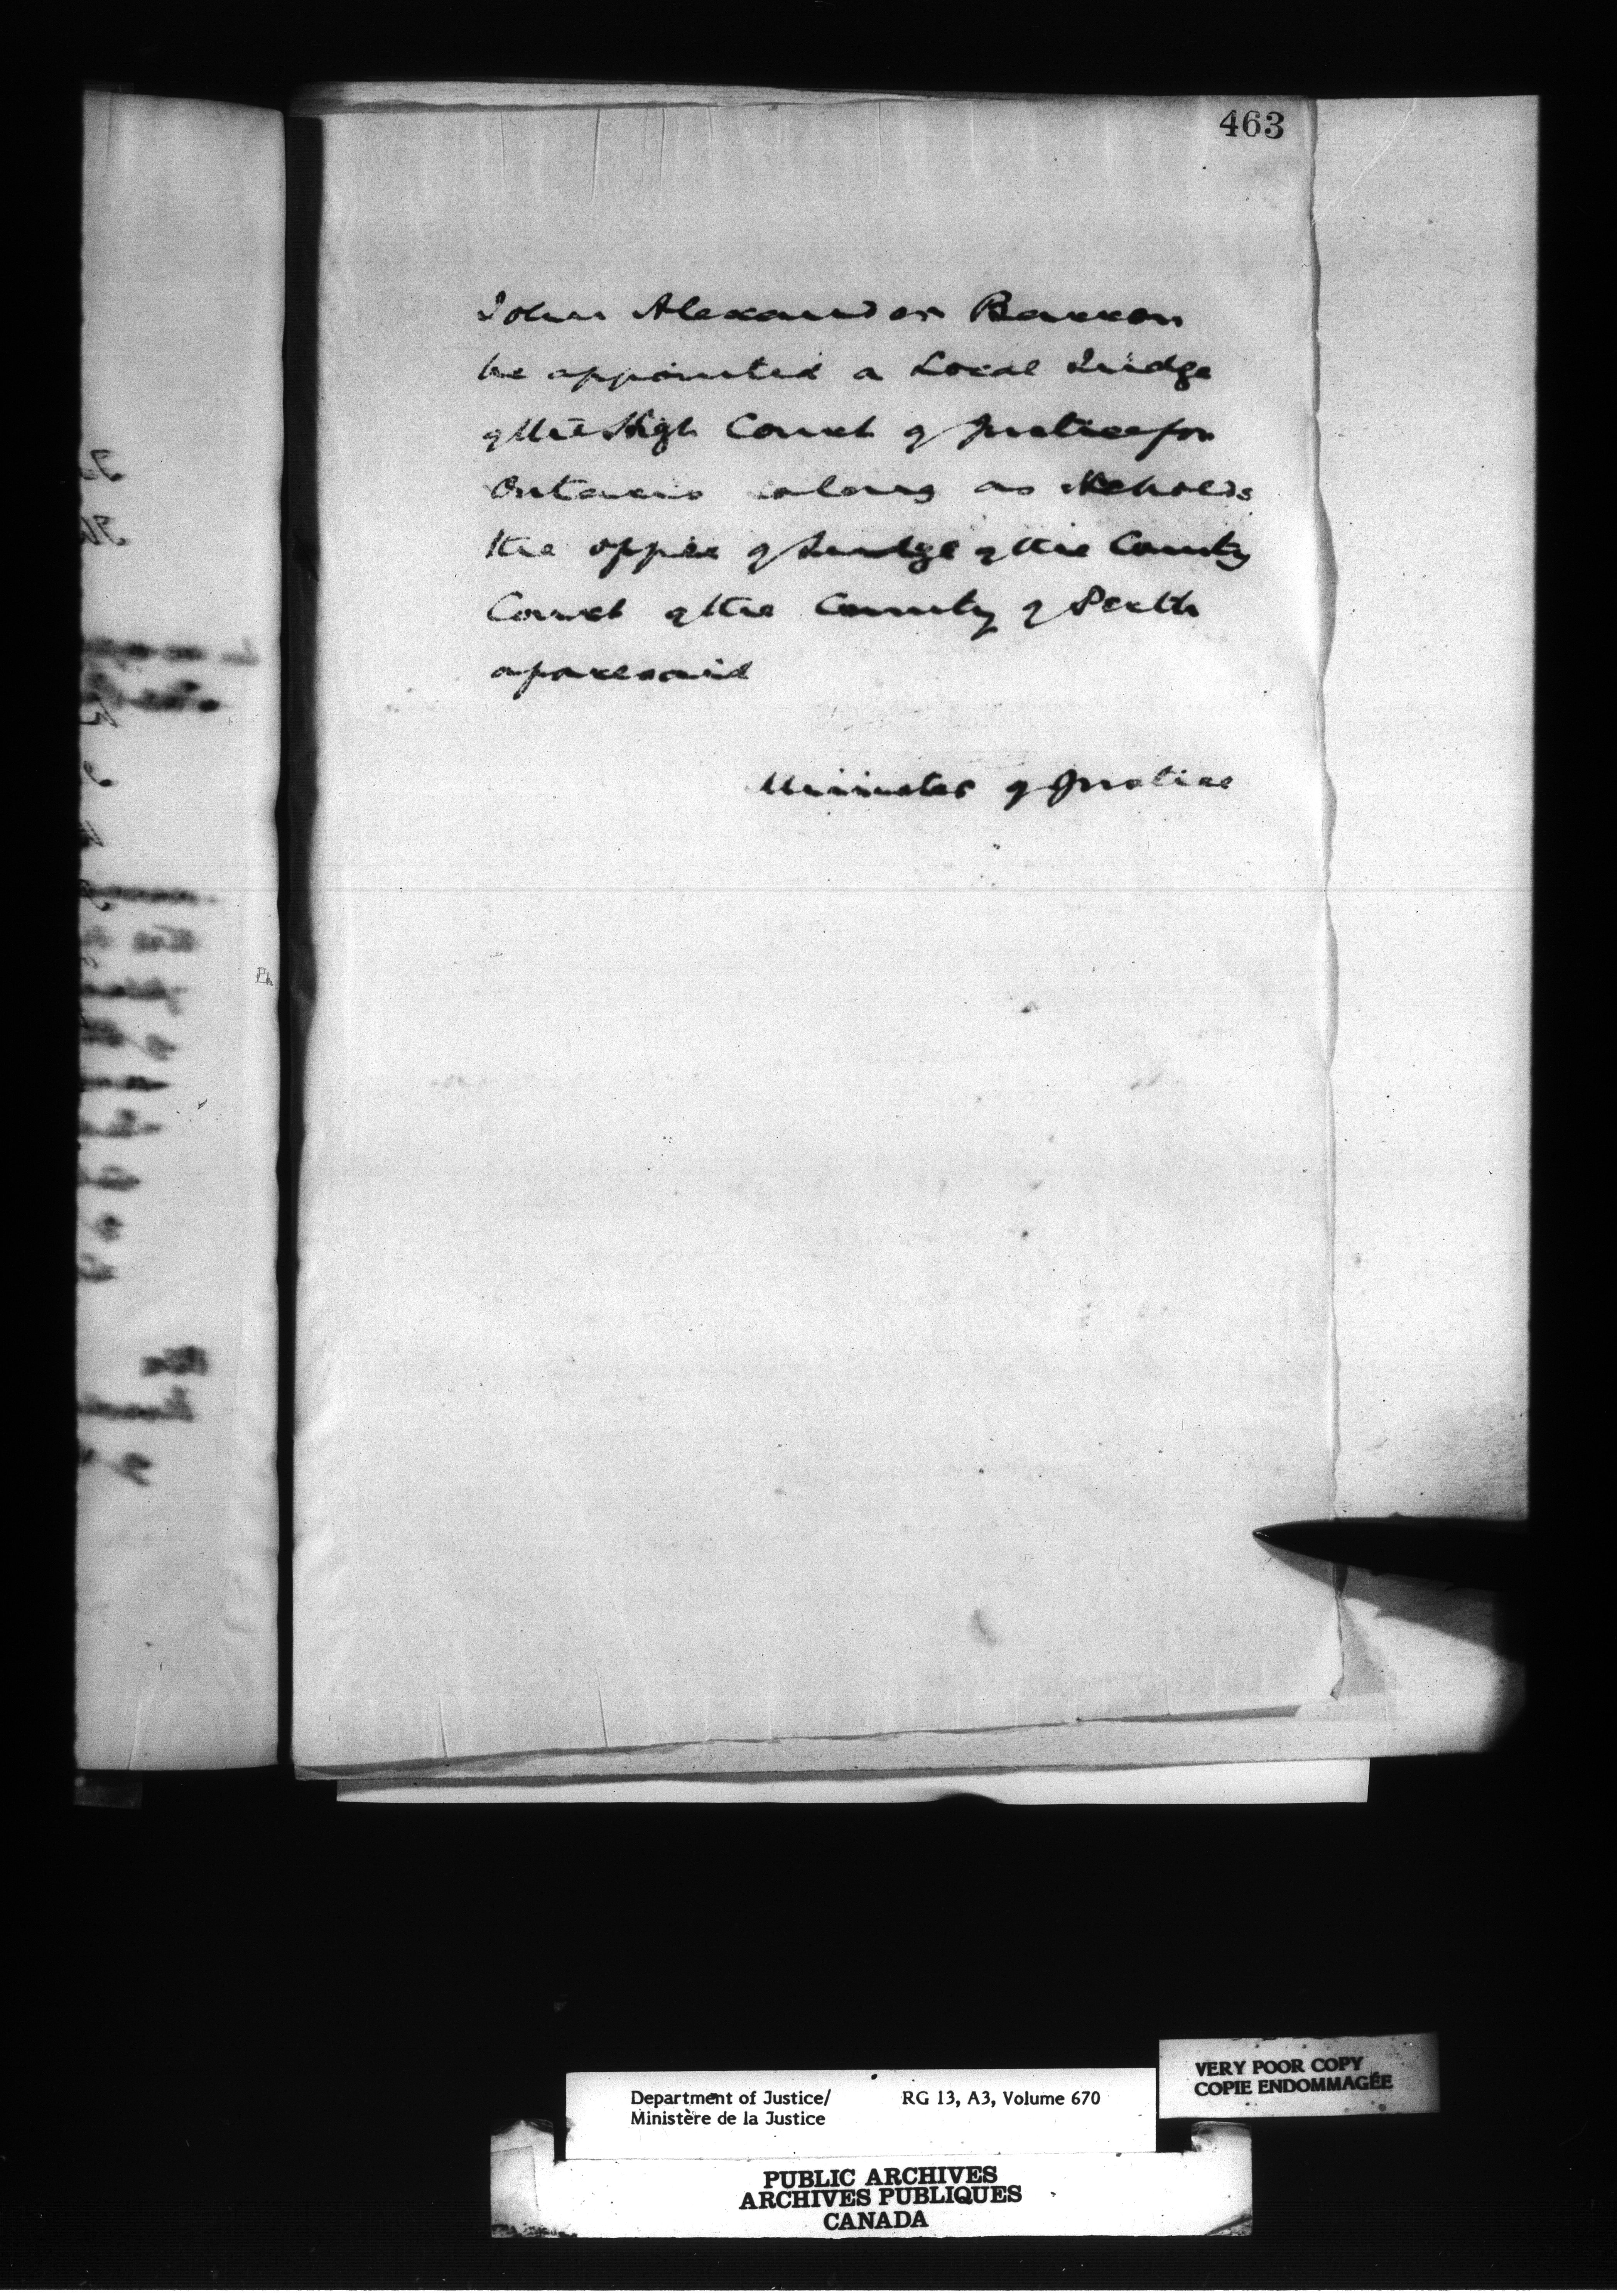 463
John Alexander Barron
be appointed a Local Judge
of the High Court of Justice for
Ontario so long as he holds
the office of Judge of the County
Court of the County of Perth
aforesaid
Minister of Justice
Department of Justice/ RG 13, A3, Volume 670
Ministère de la Justice
VERY POOR COPY
COPIE ENDOMMAGÉE
PUBLIC ARCHIVES
ARCHIVES PUBLIQUES
CANADA